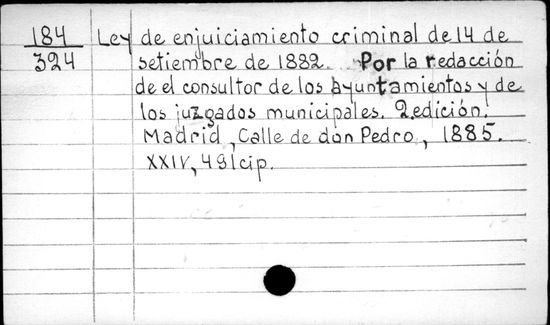 184 Ley de enjuiciamiento criminal de 14 de
324 setiembre de 1882. Por la redacción
de el consultor de los ayuntamientos y de
los juzgados municipales. 2 edición.
Madrid, Calle de don Pedro, 1885.
XXIV, 491cip.